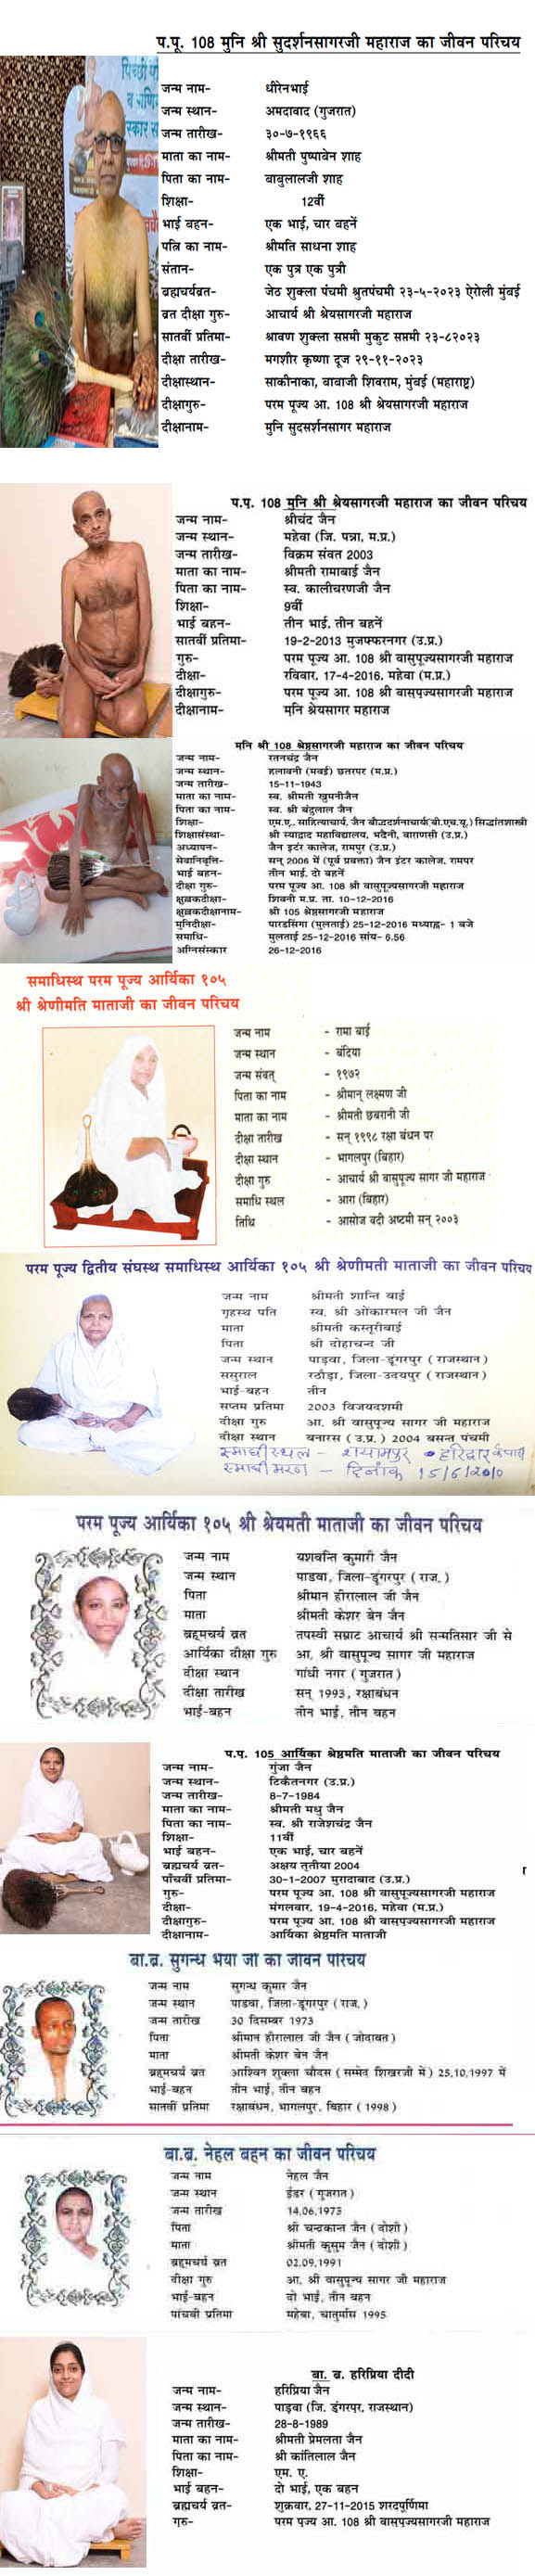 प.पू. 108 मुनि श्री सुदर्शनसागरजी महाराज का जीवन परिचय
जन्म नाम- धीरेनभाई
जन्म स्थान- अमदावाद (गुजरात)
जन्म तारीख- ३०-७-१९६६
माता का नाम- श्रीमती पुष्पाबेन शाह
पिता का नाम- बाबुलालजी शाह
शिक्षा- 12वीं
भाई बहन- एक भाई, चार बहनें
पत्नि का नाम- श्रीमति साधना शाह
संतान- एक पुत्र एक पुत्री
ब्रह्मचर्यव्रत- जेठ शुक्ला पंचमी श्रुतपंचमी २३-५-२०२३ ऐरोली मुंबई
व्रत दीक्षा गुरु- आचार्य श्री श्रेयसागरजी महाराज
सातवीं प्रतिमा- श्रावण शुक्ला सप्तमी मुकुट सप्तमी २३-८२०२३
दीक्षा तारीख- मगशीर कृष्णा दूज २९-११-२०२३
दीक्षास्थान- साकीनाका, बाबाजी शिवराम, मुंबई (महाराष्ट्र)
दीक्षागुरु- परम पूज्य आ. 108 श्री श्रेयसागरजी महाराज
दीक्षानाम- मुनि सुदसर्शनसागर महाराज
प.पू. 108 मुनि श्री श्रेयसागरजी महाराज का जीवन परिचय
जन्म नाम- श्रीचंद जैन
जन्म स्थान- महेवा (जि. पन्ना, म.प्र.)
जन्म तारीख- विक्रम संवत 2003
माता का नाम- श्रीमती रामाबाई जैन
पिता का नाम- स्व. कालीचरणजी जैन
शिक्षा- 9वीं
भाई बहन- तीन भाई, तीन बहनें
सातवीं प्रतिमा- 19-2-2013 मुजफ्फरनगर (उ.प्र.)
गुरु- परम पूज्य आ. 108 श्री वासुपूज्यसागरजी महाराज
दीक्षा- रविवार, 17-4-2016, महेवा (म.प्र.)
दीक्षागुरु- परम पूज्य आ. 108 श्री वासुपूज्यसागरजी महाराज
दीक्षानाम- मुनि श्रेयसागर महाराज
मुनि श्री 108 श्रेष्ठसागरजी महाराज का जीवन परिचय
जन्म नाम- रतनचंद्र जैन
जन्म स्थान- हलावनी (मवई) छतरपर (म.प्र.)
जन्म तारीख- 15-11-1943
माता का नाम- स्व. श्रीमती खुमनीजैन
पिता का नाम- स्व. श्री बंदुलाल जैन
शिक्षा- एम.ए., साहित्याचार्य, जैन बौद्धदर्शनाचार्य(बी.एच.यू.) सिद्धांतशास्त्री
शिक्षासंस्था- श्री स्याद्वाद महाविद्यालय, भदैनी, वाराणसी (उ.प्र.)
अध्यापन- जैन इंटर कालेज, रामपुर (उ.प्र.)
सेवानिवृत्ति- सन् 2006 में (पूर्व प्रवक्ता) जैन इंटर कालेज, रामपर
भाई बहन- तीन भाई, दो बहनें
दीक्षा गुरु- परम पूज्य आ. 108 श्री वासुपूज्यसागरजी महाराज
क्षुल्लकदीक्षा- शिवनी म.प्र. ता. 10-12-2016
क्षुल्लकदीक्षानाम- श्री 105 श्रेष्ठसागरजी महाराज
मुनिदीक्षा- पारडसिंगा (मुलताई) 25-12-2016 मध्याह्न- 1 बजे
समाधि- मुलताई 25-12-2016 सांय- 6.56
अग्निसंस्कार 26-12-2016
समाधिस्थ परम पूज्य आर्यिका १०५
श्री श्रेणीमति माताजी का जीवन परिचय
जन्म नाम - रामा बाई
जन्म स्थान - बंदिया
जन्म संवत् - १९७२
पिता का नाम - श्रीमान् लक्ष्मण जी
माता का नाम - श्रीमती छबरानी जी
दीक्षा तारीख - सन् १९९८ रक्षा बंधन पर
दीक्षा स्थान - भागलपुर (बिहार)
दीक्षा गुरु - आचार्य श्री वासुपूज्य सागर जी महाराज
समाधि स्थल - आरा (बिहार)
तिथि - आसोज वदी अष्टमी सन् २००३
परम पूज्य द्वितीय संघस्थ समाधिस्थ आर्यिका १०५ श्री श्रेणीमती माताजी का जीवन परिचय
जन्म नाम श्रीमती शान्ति बाई
गृहस्थ पति स्व. श्री ओंकारमल जी जैन
माता श्रीमती कस्तूरीबाई
पिता श्री दोहाचन्द जी
जन्म स्थान पाड़वा, जिला-डूंगरपुर ( राजस्थान )
ससुराल रठौड़ा, जिला-उदयपुर ( राजस्थान )
भाई-बहन तीन
सप्तम प्रतिमा 2003 विजयदशमी
दीक्षा गुरु आ. श्री वासुपूज्य सागर जी महाराज
दीक्षा स्थान बनारस ( उ.प्र. ) 2004 बसन्त पंचमी
स्माधी स्थल - शयामपुर हरिद्वार
स्माधी मरण - दिनांक 15/6/2010
परम पूज्य आर्यिका १०५ श्री श्रेयमती माताजी का जीवन परिचय
जन्म नाम यशवन्ति कुमारी जैन
जन्म स्थान पाडवा, जिला-डूंगरपुर ( राज. )
पिता श्रीमान हीरालाल जी जैन
माता श्रीमती केशर बेन जैन
ब्रह्मचर्य व्रत तपस्वी सम्राट आचार्य श्री सन्मतिसार जी से
आर्यिका दीक्षा गुरु आ. श्री वासुपूज्य सागर जी महाराज
दीक्षा स्थान गांधी नगर ( गुजरात )
दीक्षा तारीख सन् 1993, रक्षाबंधन
भाई-बहन तीन भाई, तीन बहन
प.प. 105 आर्यिका श्रेष्ठमति माताजी का जीवन परिचय
जन्म नाम- गुंजा जैन
जन्म स्थान- टिकैतनगर (उ.प्र.)
जन्म तारीख- 8-7-1984
माता का नाम- श्रीमती मधु जैन
पिता का नाम- स्व. श्री राजेशचंद्र जैन
शिक्षा- 11वीं
भाई बहन- एक भाई, चार बहनें
ब्रह्मचर्य व्रत- अक्षय तृतीया 2004
पाँचवीं प्रतिमा- 30-1-2007 मुरादाबाद (उ.प्र.)
गुरु- परम पूज्य आ. 108 श्री वासुपूज्यसागरजी महाराज
दीक्षा- मंगलवार, 19-4-2016, महेवा (म.प्र.)
दीक्षागुरु- परम पूज्य आ. 108 श्री वासुपूज्यसागरजी महाराज
दीक्षानाम- आर्यिका श्रेष्ठमति माताजी
बा.ब्र. सुगन्ध भैया जी का जीवन परिचय
जन्म नाम सुगन्ध कुमार जैन
जन्म स्थान पाडवा, जिला-डूंगरपुर ( राज. )
जन्म तारीख 30 दिसम्बर 1973
पिता श्रीमान हीरालाल जी जैन ( जोदावत )
माता श्रीमती केशर बेन जैन
ब्रह्मचर्य व्रत आश्विन शुक्ला चौदस ( सम्मेद शिखरजी में ) 25.10.1997 में
भाई-बहन तीन भाई, तीन बहन
सातवीं प्रतिमा रक्षाबंधन, भागलपुर, बिहार ( 1998 )
बा.ब्र. नेहल बहन का जीवन परिचय
जन्म नाम नेहल जैन
जन्म स्थान ईडर ( गुजरात )
जन्म तारीख 14.06.1973
पिता श्री चन्द्रकान्त जैन ( दोशी )
माता श्रीमती कुसुम जैन ( दोशी )
ब्रह्मचर्य व्रत 02.09.1991
दीक्षा गुरु आ. श्री वासुपूज्य सागर जी महाराज
भाई-बहन दो भाई, तीन बहन
पांचवी प्रतिमा महेबा, चातुर्मास 1995
बा. ब्र. हरिप्रिया दीदी
जन्म नाम- हरिप्रिया जैन
जन्म स्थान- पाड़वा (जि. डूंगरपर, राजस्थान)
जन्म तारीख- 28-8-1989
माता का नाम- श्रीमती प्रेमलता जैन
पिता का नाम- श्री कांतिलाल जैन
शिक्षा- एम. ए.
भाई बहन- दो भाई, एक बहन
ब्रह्मचर्य व्रत- शुक्रवार, 27-11-2015 शरदपूर्णिमा
गुरु- परम पूज्य आ. 108 श्री वासुपूज्यसागरजी महाराज